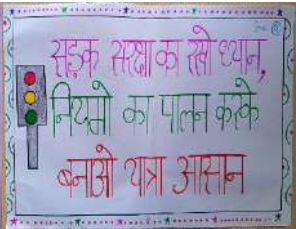 सड़क सुरक्षा का रखे ध्यान,
नियमो का पालन करके
बनाओ यात्रा आसान